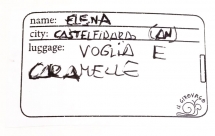 name: ELENA
city: CASTELFIDARDO (AN)
luggage: VOGLIA E
CARAMELLE
IL GIROVAGO